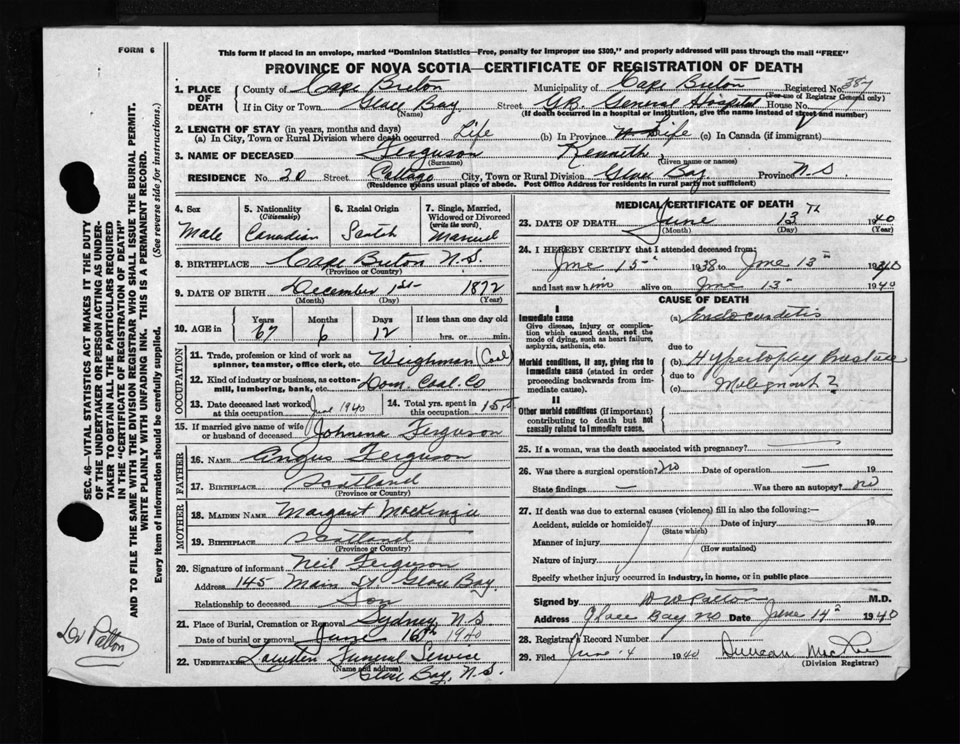 FORM 6
This form if placed in an envelope, marked "Dominion Statistics—Free, penalty for improper use $300," and properly addressed will pass through the mail "FREE"
PROVINCE OF NOVA SCOTIA—CERTIFICATE OF REGISTRATION OF DEATH
1. PLACE OF DEATH
County of Cape Breton Municipality of Cape Breton Registered No. 387
(For use of Registrar General only)
If in City or Town Glace Bay Street G.B. General Hospital House No.
(Name) (If death occurred in a hospital or institution, give the name instead of street and number)
2. LENGTH OF STAY (in years, months and days)
(a) In City, Town or Rural Division where death occurred Life (b) In Province Life (c) In Canada (if immigrant)
3. NAME OF DECEASED Ferguson Kenneth
(Surname) (Given name or names)
RESIDENCE No. 20 Street Cottage City, Town or Rural Division Glace Bay Province N.S.
(Residence means usual place of abode. Post Office Address for residents in rural parts not sufficient)
4. Sex
Male
5. Nationality
(Citizenship)
Canadian
6. Racial Origin
Scotch
7. Single, Married, Widowed or Divorced
(write the word)
Married
8. BIRTHPLACE Cape Breton N.S.
(Province or Country)
9. DATE OF BIRTH December 1st 1872
(Month) (Day) (Year)
10. AGE in
Years Months Days If less than one day old
67 6 12 hrs. or min.
OCCUPATION
11. Trade, profession or kind of work as spinner, teamster, office clerk, etc. Weighman (Coal
12. Kind of industry or business, as cotton-mill, lumbering, bank, etc. Dom. Coal Co
13. Date deceased last worked at this occupation June 1940
14. Total yrs. spent in this occupation 15
15. If married give name of wife or husband of deceased Johnena Ferguson
FATHER
16. NAME Angus Ferguson
17. BIRTHPLACE Scotland
(Province or Country)
MOTHER
18. MAIDEN NAME Margaret MacKenzie
19. BIRTHPLACE Scotland
(Province or Country)
20. Signature of informant Neil Ferguson
Address 145 Main St. Glace Bay
Relationship to deceased Son
21. Place of Burial, Cremation or Removal Sydney N.S
Date of burial or removal June 16th 1940
22. UNDERTAKER Funeral Service
(Name and address)
Glace Bay, N.S.
MEDICAL CERTIFICATE OF DEATH
23. DATE OF DEATH June 13th 1940
(Month) (Day) (Year)
24. I HEREBY CERTIFY that I attended deceased from:
June 15 1938 to June 13 1940
and last saw him alive on June 13 1940
CAUSE OF DEATH
I
Immediate cause
Give disease, injury or complication which caused death, not the mode of dying, such as heart failure, asphyxia, asthenia, etc.
(a) Endocarditis
due to
Morbid conditions, if any, giving rise to immediate cause (stated in order proceeding backwards from immediate cause).
(b) Hypertrophy Prostate
due to
(c) Malignant?
II
Other morbid conditions (if important) contributing to death but not causally related to immediate cause.
25. If a woman, was the death associated with pregnancy?
26. Was there a surgical operation? no Date of operation — 19
State findings — Was there an autopsy? no
27. If death was due to external causes (violence) fill in also the following:—
Accident, suicide or homicide? Date of injury 19
(State which)
Manner of injury
(How sustained)
Nature of injury
Specify whether injury occurred in industry, in home, or in public place
Signed by D W Patton M.D.
Address Glace Bay NS Date June 14 1940
28. Registrar's Record Number
29. Filed June 4 1940 Duncan
(Division Registrar)
SEC. 46—VITAL STATISTICS ACT MAKES IT THE DUTY
OF THE UNDERTAKER OR PERSON ACTING AS UNDER-
TAKER TO OBTAIN ALL THE PARTICULARS REQUIRED
IN THE "CERTIFICATE OF REGISTRATION OF DEATH"
AND TO FILE THE SAME WITH THE DIVISION REGISTRAR WHO SHALL ISSUE THE BURIAL PERMIT.
WRITE PLAINLY WITH UNFADING INK. THIS IS A PERMANENT RECORD.
Every item of Information should be carefully supplied. (See reverse side for instructions.)
Dr Patton